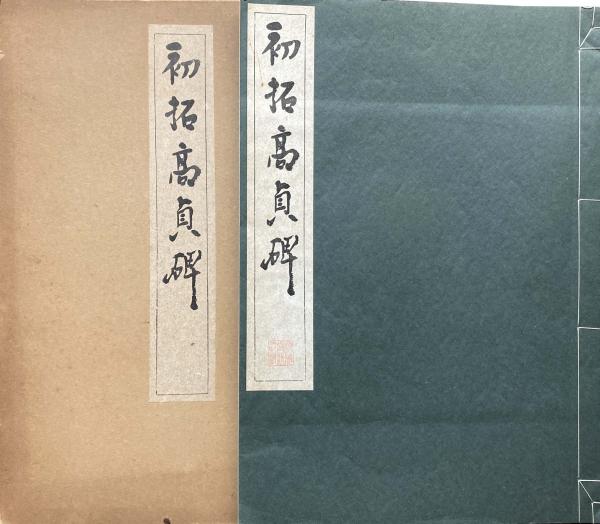 初拓高貞碑
初拓高貞碑